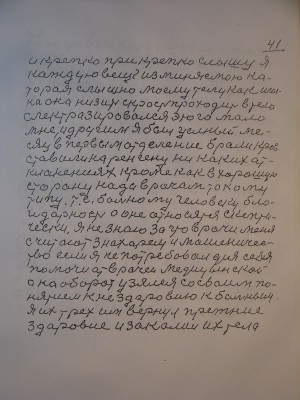 41
и крепко при крепко слышу. Я
каждую вещ изминяемою ка-
торая слышно моему телу как
она низким скрост проходит в тело
электразировался этого мало
мне и другим я был целый ме-
сяц в первым отделение брали кров
ставили на ренгену ни каких от-
кланениях кроме как в хорошую
сторану нада врачам такому
типу. т.е. больному человеку бла-
гидарност а оне относятся скепти-
чески, я не знаю за что врачи меня
считают знахарем и машеничес-
тво если я не потребовал для себя
помочи от врачей медицинской
а наоборот узялся со своим по-
нятием к не здаровию к больным.
Я их трех им вернул прежние
здаровие и закалил их тела